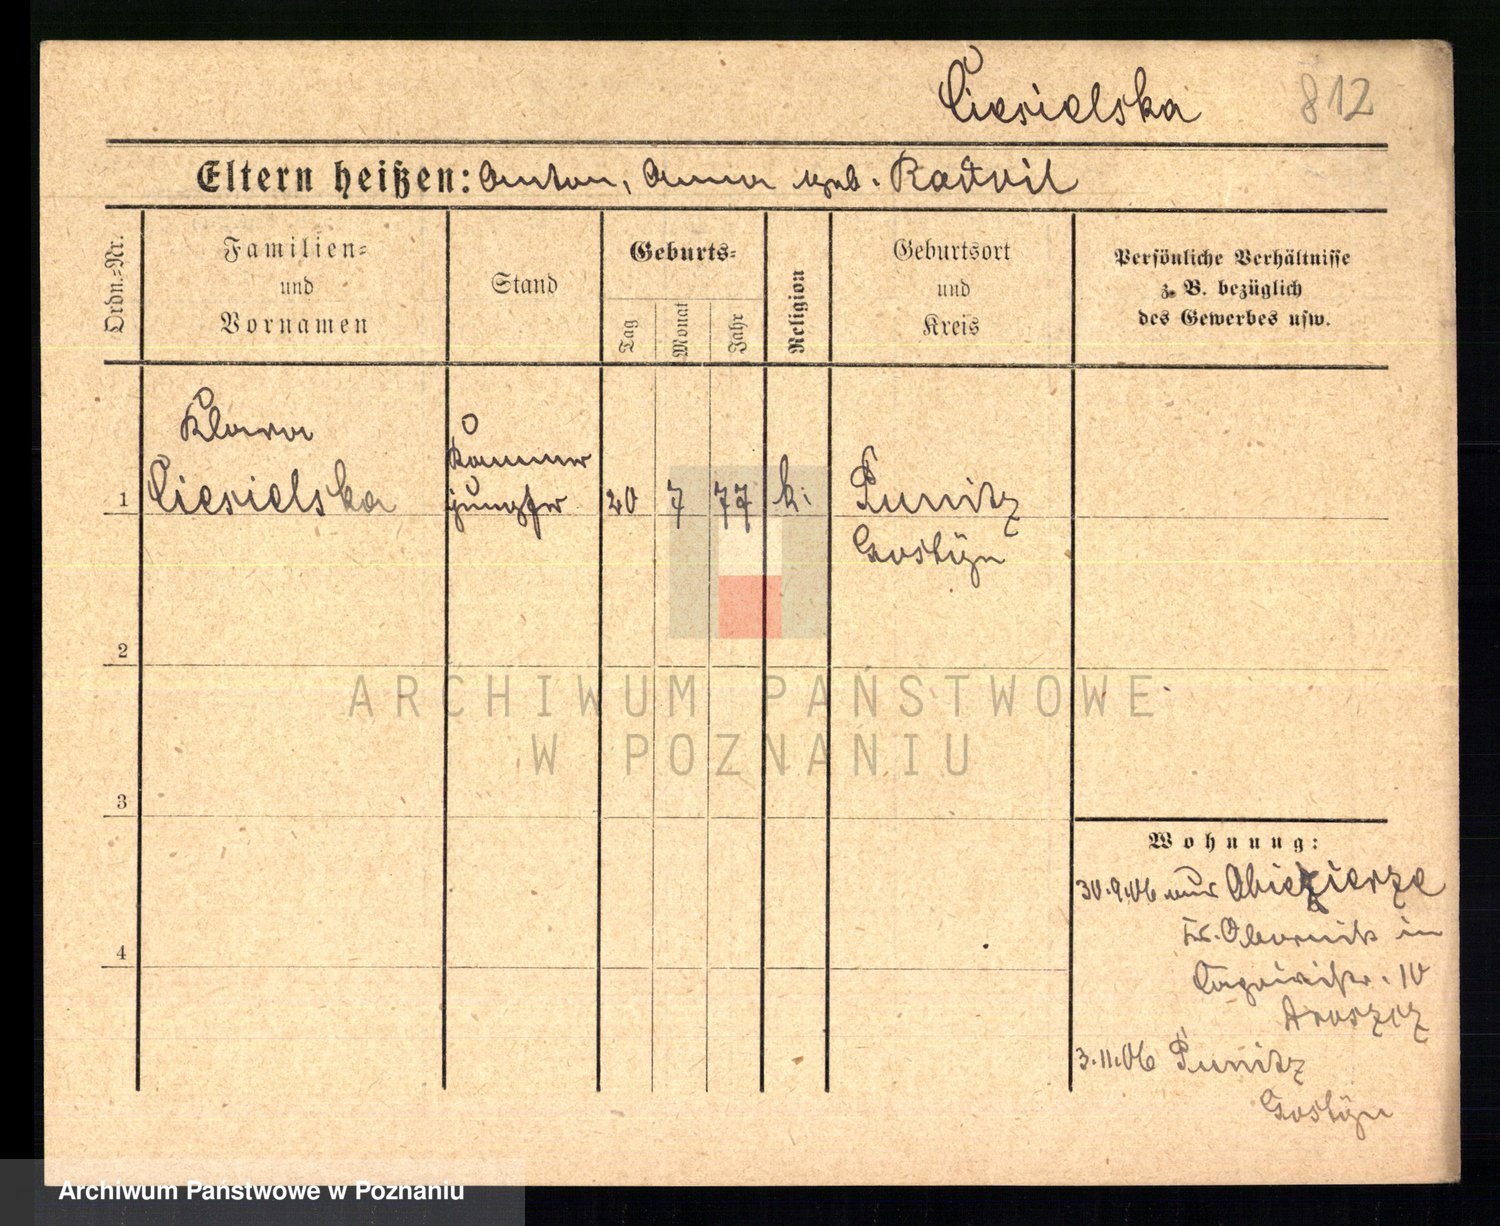 Ciesielska 812
Eltern heißen: Anton, Anna geb. Ratvil
Ordn.-Nr.
Familien-
und
Vornamen
Stand
Geburts-
Tag
Monat
Jahr
Religion
Geburtsort
und
Kreis
Persönliche Verhältnisse
z. B. bezüglich
des Gewerbes usw.
Klara Kammer
1 Ciesielska jungfer 20 7 77 k. Punitz
Gostyn
2
ARCHIWUM PAŃSTWOWE
W POZNANIU
3
Wohnung:
30.9.06 aus Obiezierze
Kr. Obornik in
10
4
3.11.06 Punitz
Gostyn
Archiwum Państwowe w Poznaniu